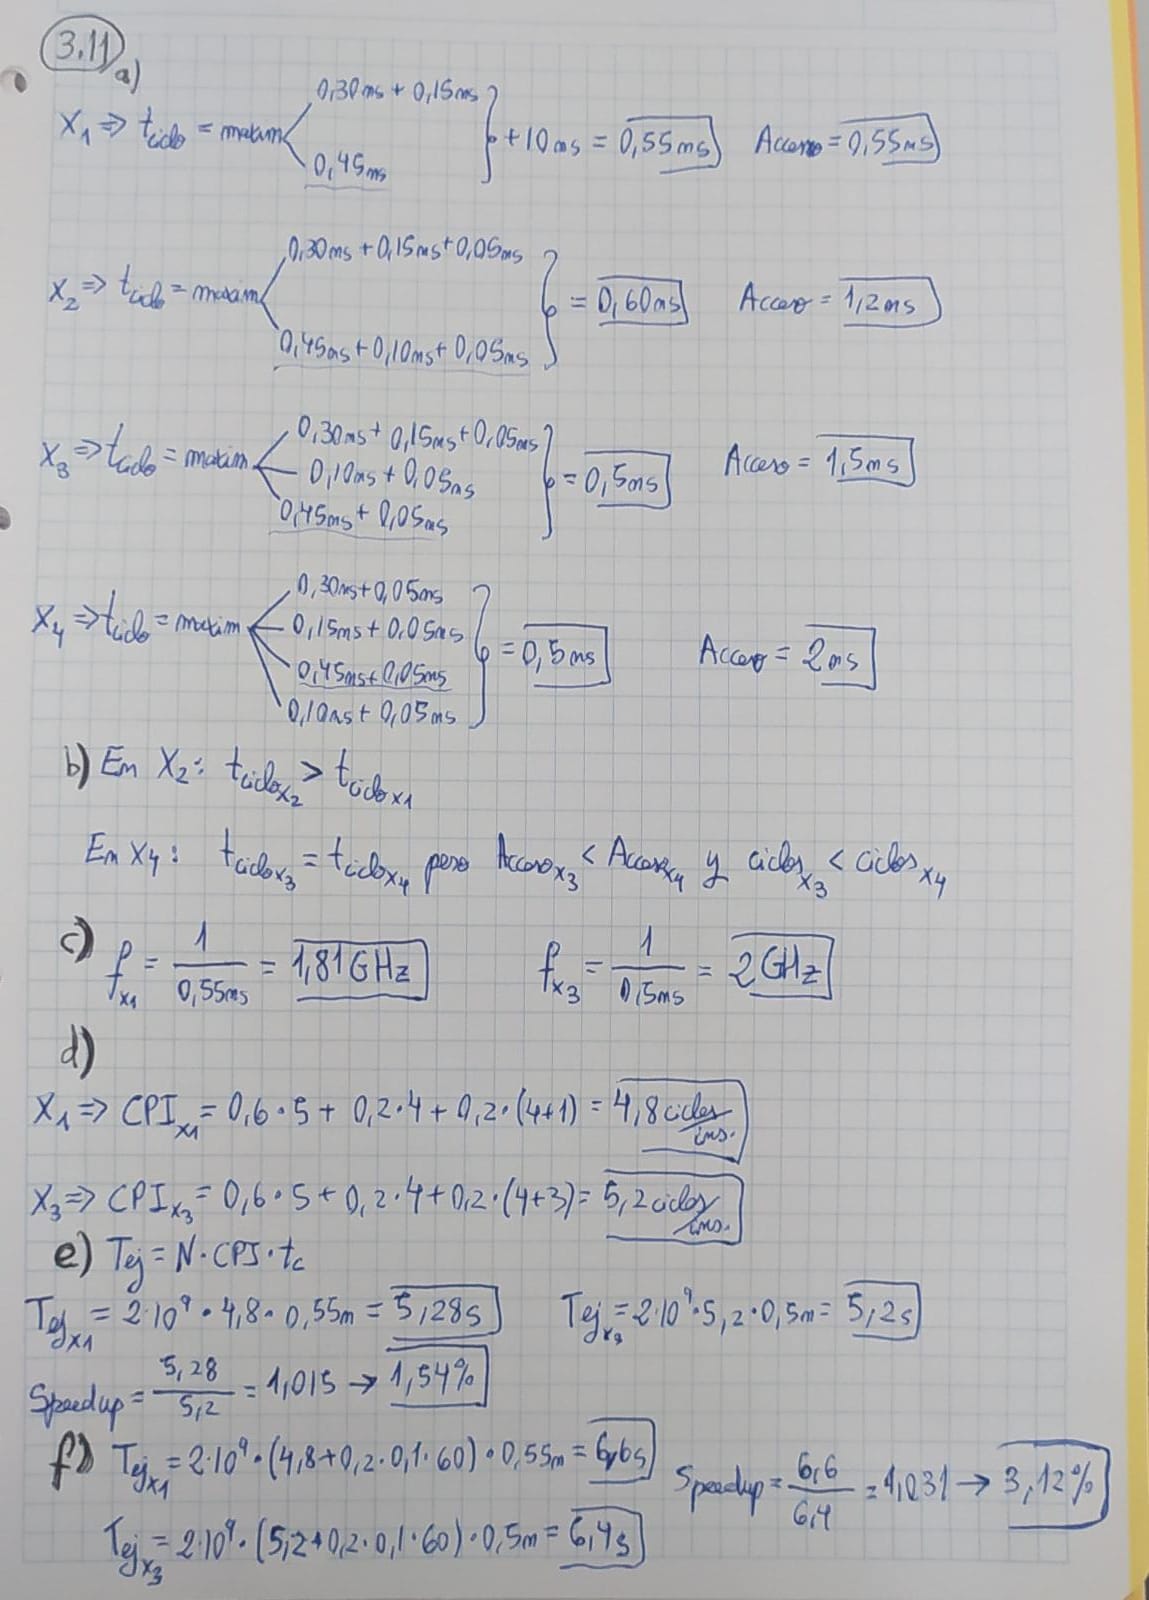 3.11
a)
X₁ ⇒ t_ciclo = maxim
0,30ns + 0,15ns
0,45ns
+10ns = 0,55ns
Acceso = 0,55ns
X₂ ⇒ t_ciclo = maxim
0,30ns + 0,15ns + 0,05ns
0,45ns + 0,10ns + 0,05ns
= 0,60ns
Acceso = 1,2ns
X₃ ⇒ t_ciclo = maxim
0,30ns + 0,15ns + 0,05ns
0,10ns + 0,05ns
0,45ns + 0,05ns
= 0,5ns
Acceso = 1,5ns
X₄ ⇒ t_ciclo = maxim
0,30ns + 0,05ns
0,15ns + 0,05ns
0,45ns + 0,05ns
0,10ns + 0,05ns
= 0,5ns
Acceso = 2ns
b) En X₂: t_ciclo x2 > t_ciclo x1
En X4: t_ciclo x3 = t_ciclo x4 pero Acceso x3 < Acceso x4 y ciclos x3 < ciclos x4
c) f x1 = 1 / 0,55ns = 1,81GHz f x3 = 1 / 0,5ns = 2GHz
d)
X₁ ⇒ CPI x1 = 0,6·5 + 0,2·4 + 0,2·(4+1) = 4,8 ciclos/ins.
X₃ ⇒ CPI x3 = 0,6·5 + 0,2·4 + 0,2·(4+3) = 5,2 ciclos/ins.
e) Tej = N·CPI·tc
Tej x1 = 2·10⁹ · 4,8 · 0,55n = 5,28s Tej x3 = 2·10⁹ · 5,2 · 0,5n = 5,2s
Speedup = 5,28 / 5,2 = 1,015 → 1,54%
f) Tej x1 = 2·10⁹ · (4,8 + 0,2·0,1·60) · 0,55n = 6,6s
Speedup = 6,6 / 6,4 = 1,031 → 3,12%
Tej x3 = 2·10⁹ · (5,2 + 0,2·0,1·60) · 0,5n = 6,4s